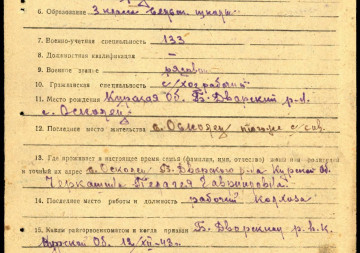 6. Образование 3 класса
7. Военно-учетная специальность 133
8. Должностная квалификация
9. Военное звание рядовой
10. Гражданская специальность с/хоз рабочий
11. Место рождения Курская Об. Б. Дворский р-н.
12. Последнее место жительства
13. Где проживает в настоящее время семья (фамилия, имя, отчество) жены или родителей
и точный их адрес Б. Дворского р-на Курской Об.
Пелагея Гавриловна
14. Последнее место работы и должность рабочий Колхоза
15. Каким райгорвоенкоматом и когда призван Б. Дворским р.в.к.
Курской Об. 12/XII-43г.